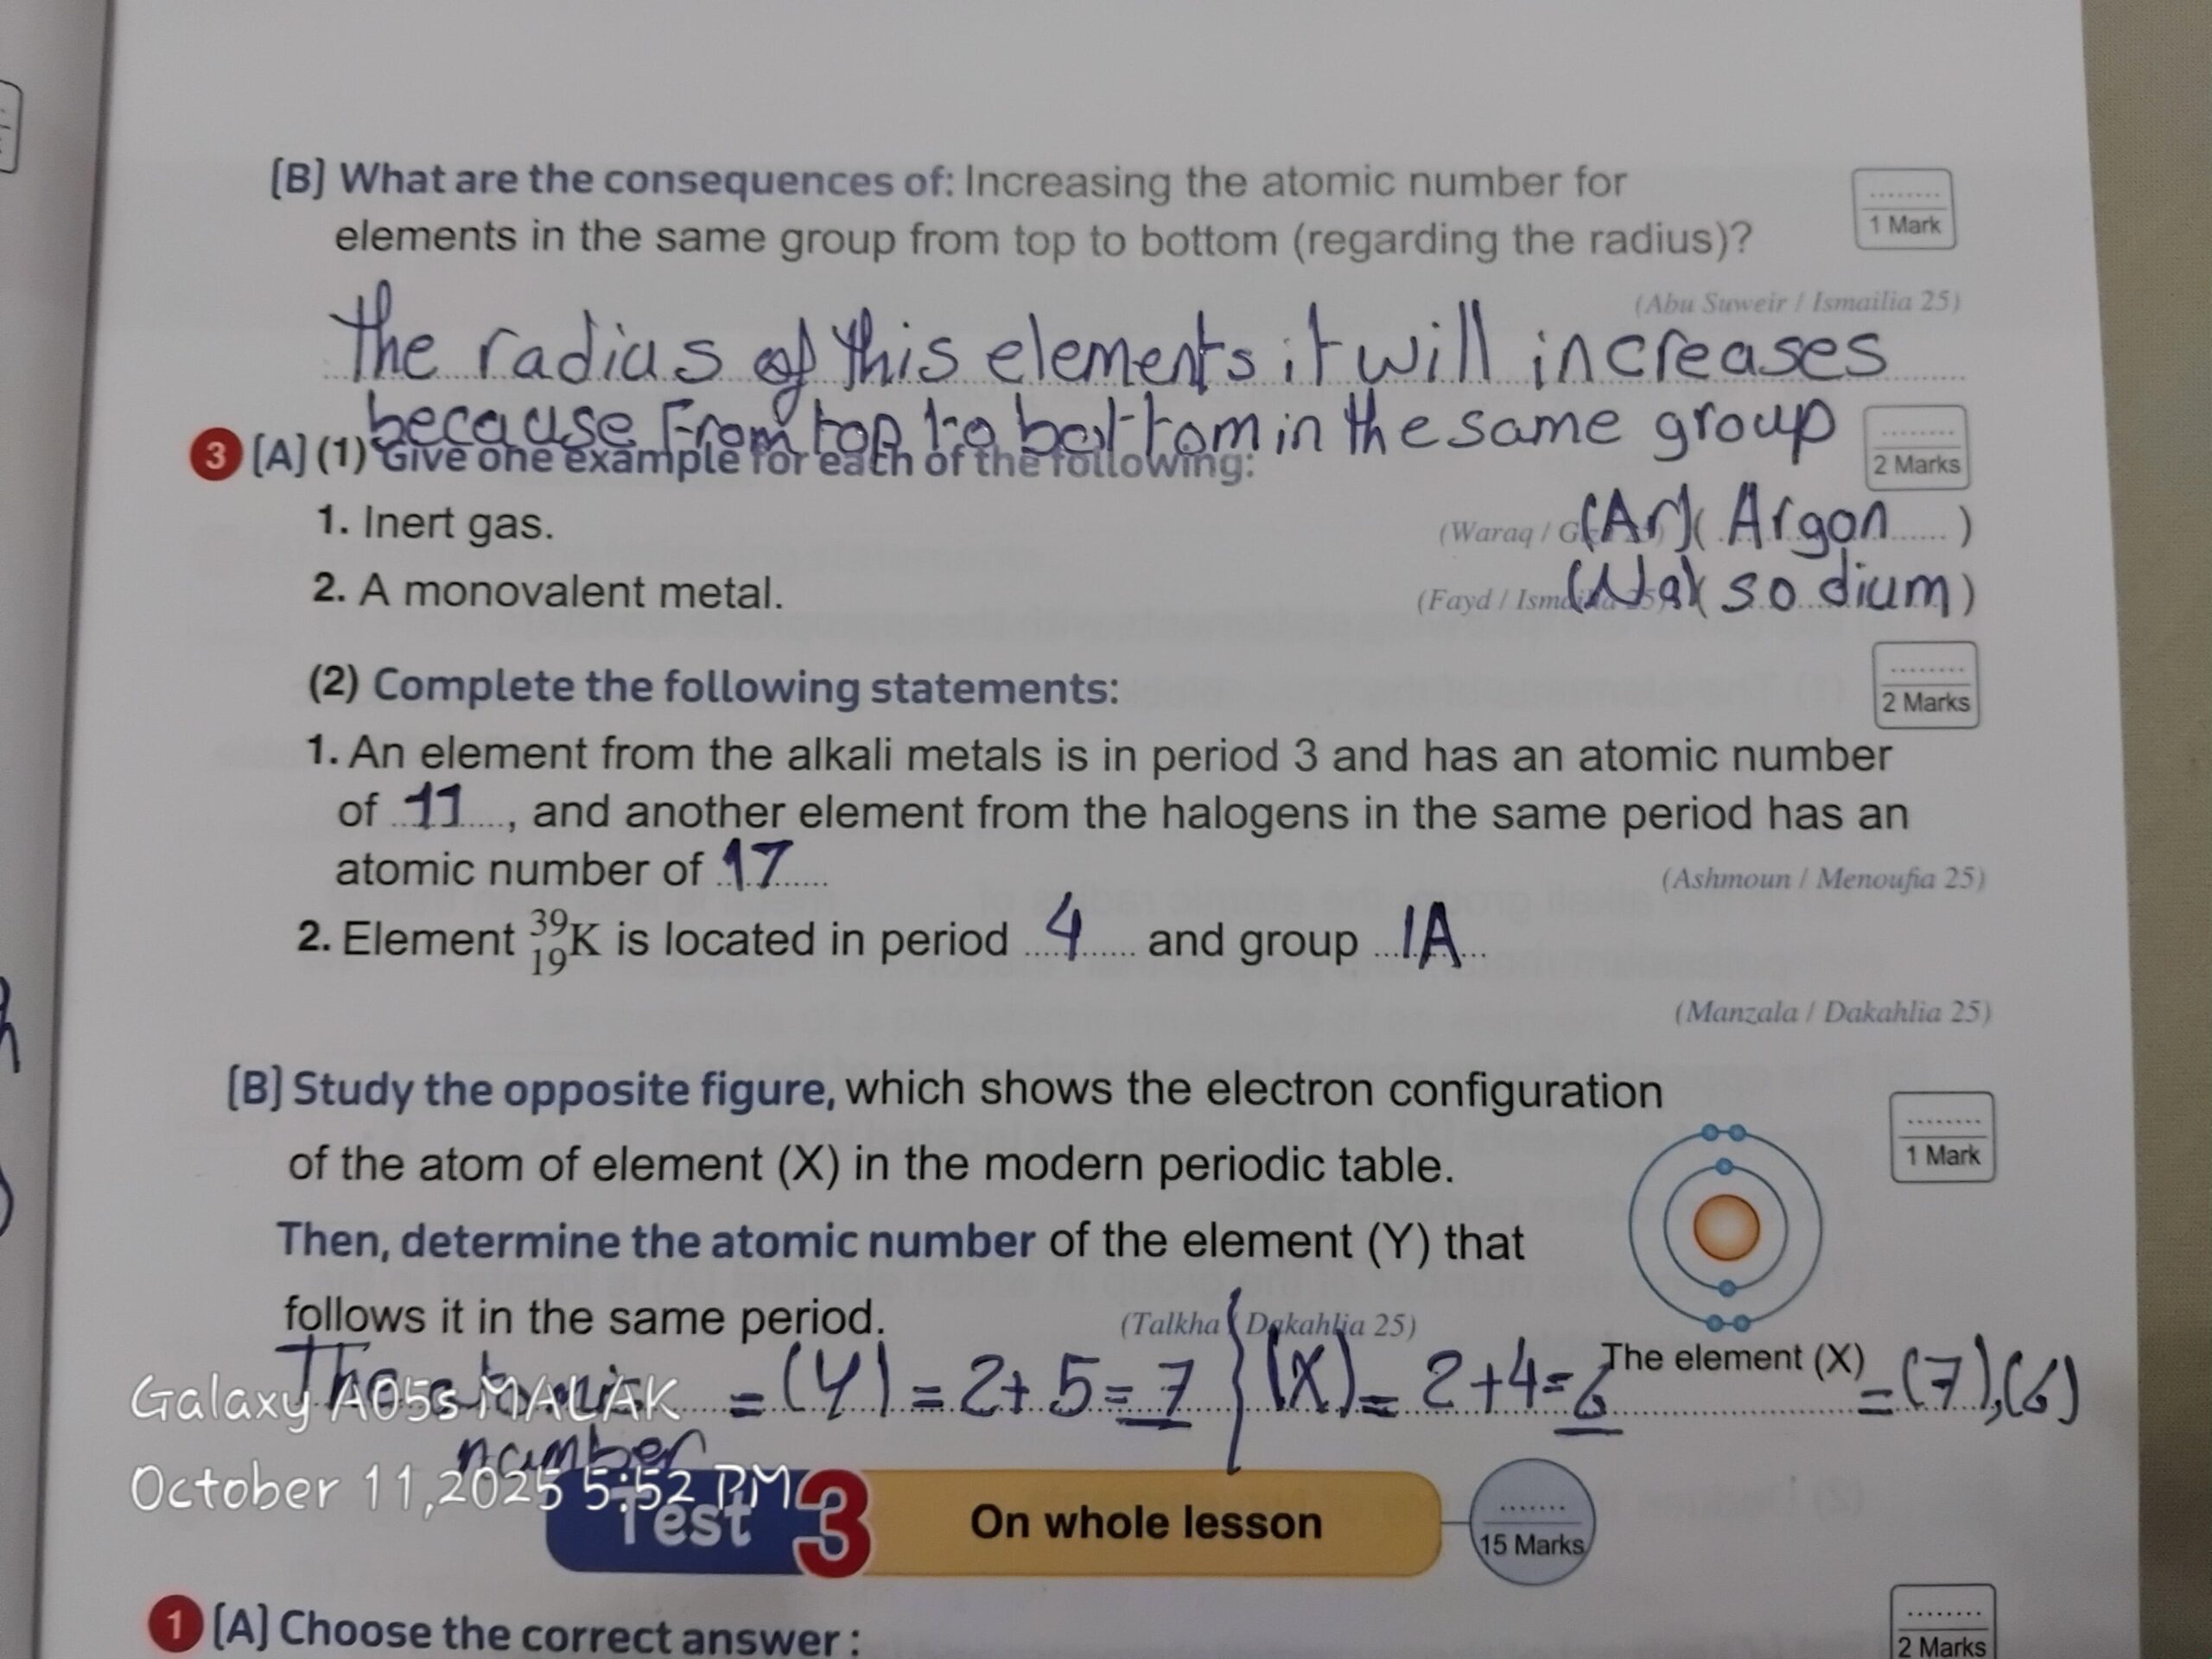 [B] What are the consequences of: Increasing the atomic number for
elements in the same group from top to bottom (regarding the radius)?
........
1 Mark
(Abu Suweir / Ismailia 25)
the radius of this elements it will increases
because From top to bottom in the same group
........
2 Marks
3 [A] (1) Give one example for each of the following:
1. Inert gas. (Waraq / (Ar) (Argon......)
2. A monovalent metal. (Fayd / Ismailia 25) (Na) (sodium)
(2) Complete the following statements:
........
2 Marks
1. An element from the alkali metals is in period 3 and has an atomic number
of 11, and another element from the halogens in the same period has an
atomic number of 17
(Ashmoun / Menoufia 25)
2. Element ³⁹₁₉K is located in period 4 and group 1A
(Manzala / Dakahlia 25)
[B] Study the opposite figure, which shows the electron configuration
of the atom of element (X) in the modern periodic table.
........
1 Mark
Then, determine the atomic number of the element (Y) that
follows it in the same period. (Talkha / Dakahlia 25)
The element (X)
The atomic = (Y) = 2+5=7 } (X) = 2+4=6 = (7),(6)
number
Galaxy A05s MALAK
October 11,2025 5:52 PM
Test 3 On whole lesson
.......
15 Marks
1 [A] Choose the correct answer :
........
2 Marks